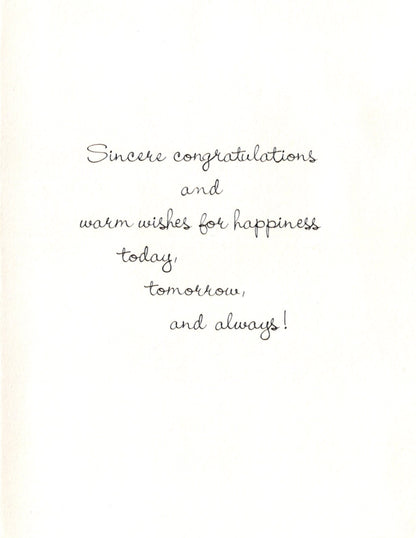 Sincere congratulations
and
warm wishes for happiness
today,
tomorrow,
and always!